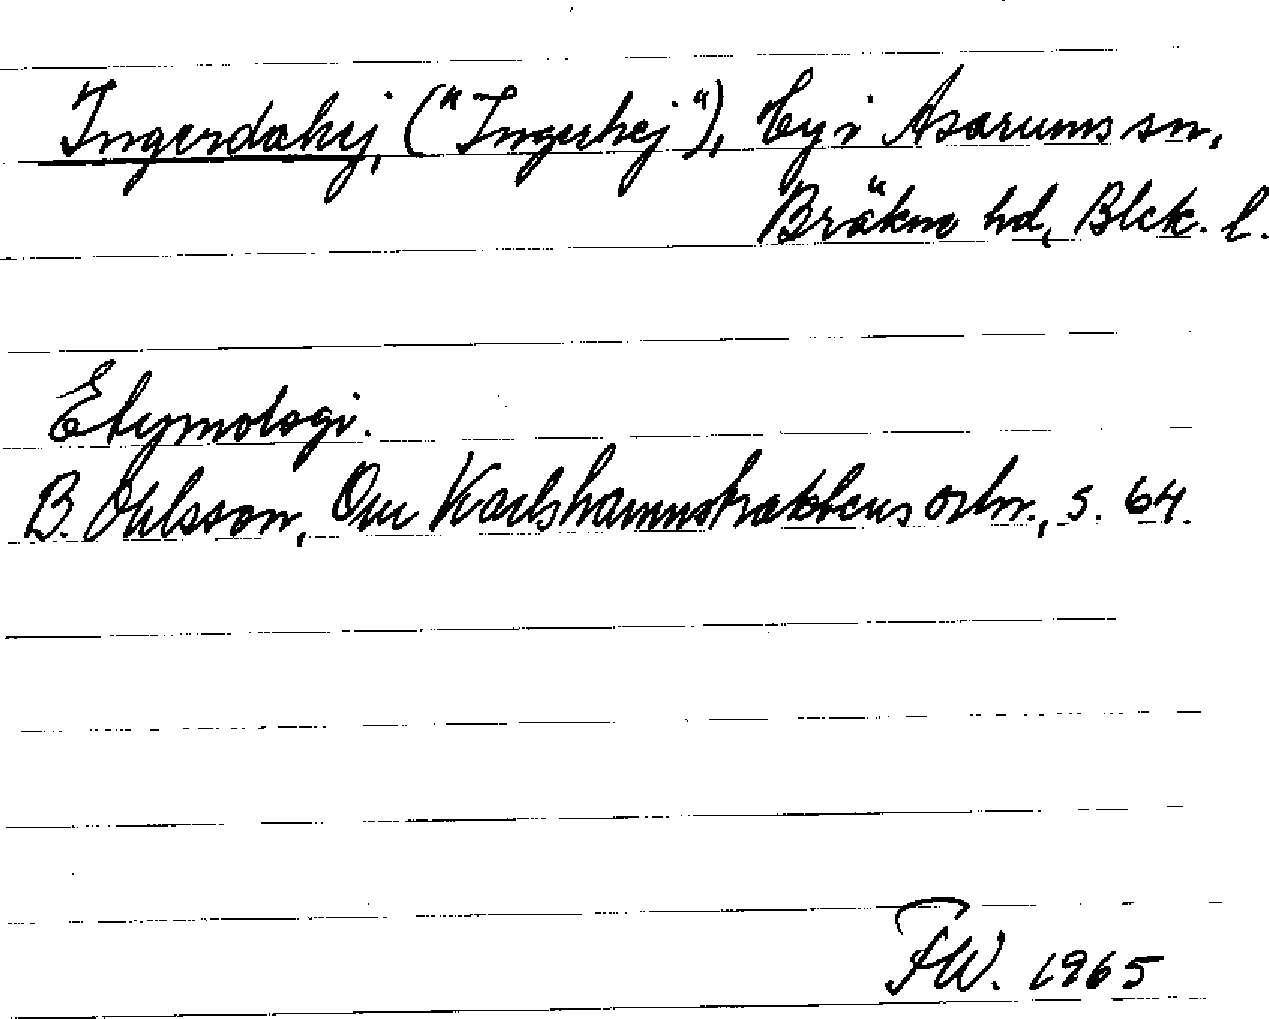 Ingerdahej, ("Ingerhej"), by i Asarums sn,
Bräkne hd, Blek. l.
Etymologi.
B. Ohlsson, Om Karlshamnstraktens ortn., s. 64.
FW. 1965